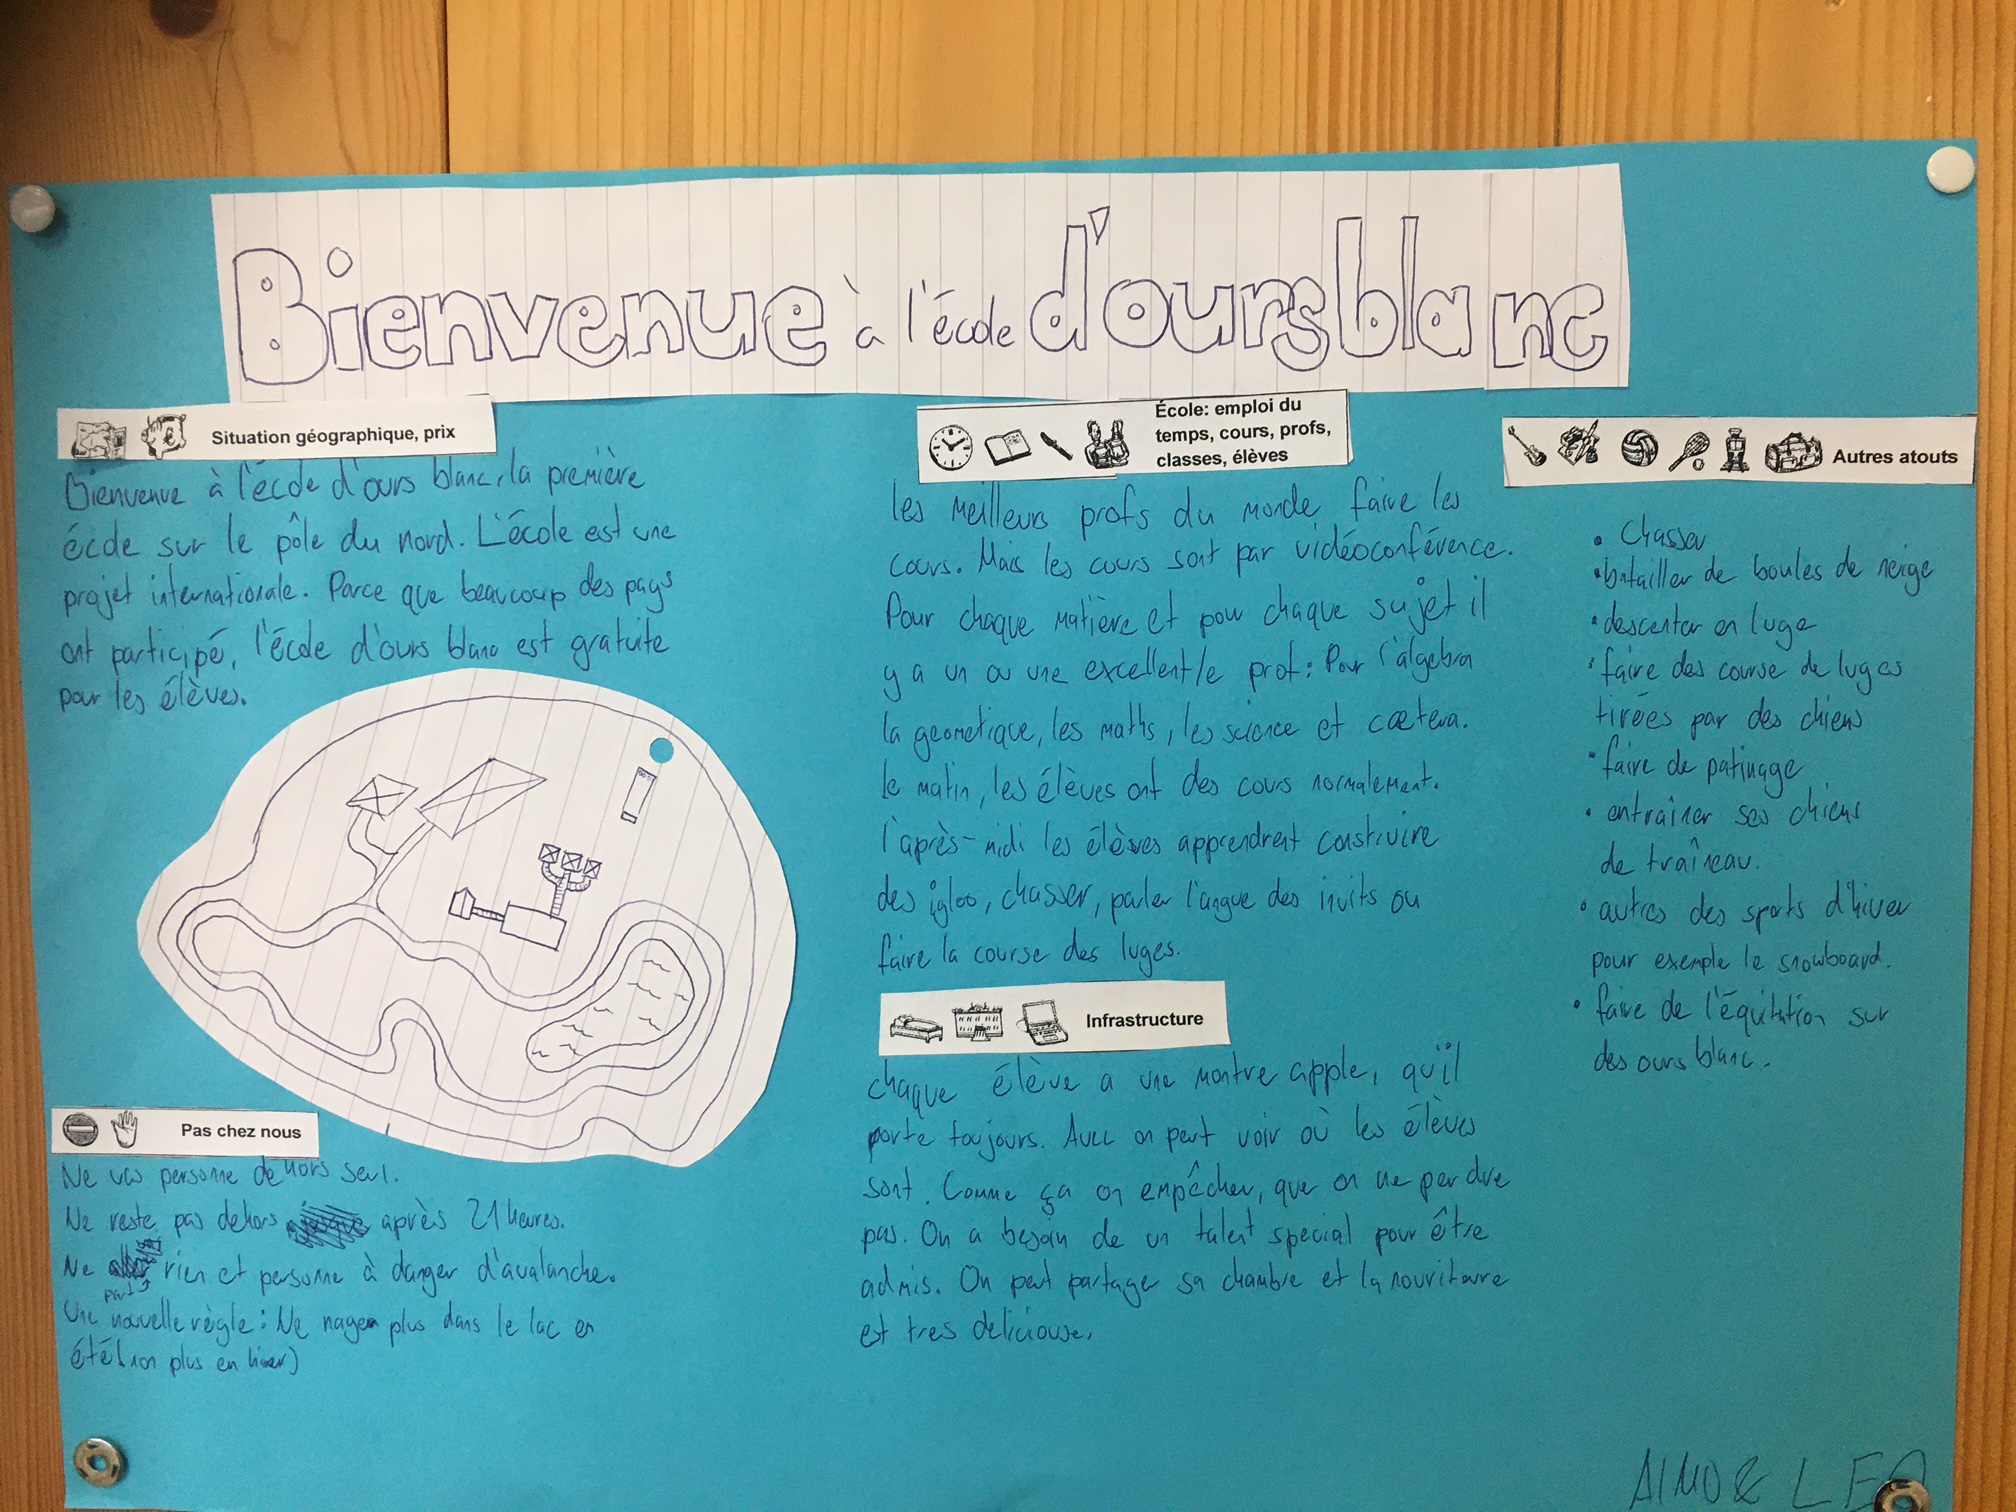 Bienvenue à l'école d'ours blanc
Situation géographique, prix
Bienvenue à l'école d'ours blanc, la première
école sur le pôle du nord. L'école est une
projet internationale. Parce que beaucoup des pays
ont participé, l'école d'ours blanc est gratuite
pour les élèves.
Pas chez nous
Ne vas personne dehors seul.
Ne reste pas dehors après 21 heures.
Ne part rien et personne à danger d'avalanche.
Une nouvelle règle: Ne nagen plus dans le lac en
été! non plus en hiver)
École: emploi du
temps, cours, profs,
classes, élèves
les meilleurs profs du monde faire les
cours. Mais les cours sont par vidéoconférence.
Pour chaque matière et pour chaque sujet il
y a un ou une excellent/e prof: Pour l'algebra
la geometique, les maths, les science et cætera.
le matin, les élèves ont des cours normalement.
l'après-midi les élèves apprendrent construire
des igloo, chasser, parler l'angue des inuits ou
faire la course des luges.
Infrastructure
chaque élève a une montre apple, qu'il
porte toujours. Avec on peut voir où les élèves
sont. Comme ça on empêcher, que on ne perdre
pas. On a besoin de un talent special pour être
admis. On peut partager sa chambre et la nouriture
est tres deliciouse.
Autres atouts
• Chasser
• batailler de boules de neige
• descenter en luge
• faire des course de luges
tirées par des chiens
• faire de patinage
• entraîner ses chiens
de traîneau.
• autres des sports d'hiver
pour exemple le snowboard.
• faire de l'équitation sur
des ours blanc.
AIMO & LEO